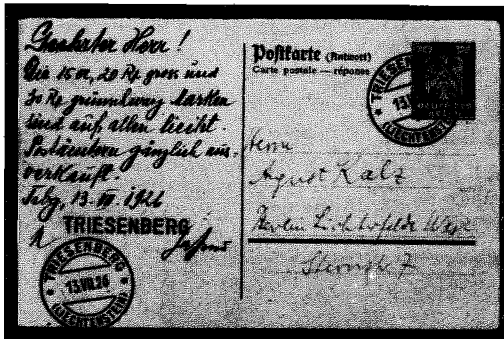 Geehrter Herr!
Die 15 er, 20 Rp. grün und
30 Rp. Marken
sind auf allen liecht.
Postämtern gänzlich aus-
verkauft.
Tsbg, 13. VII 1926
TRIESENBERG
TRIESENBERG
13.VII.26
(LIECHTENSTEIN)
Postkarte (Antwort)
Carte postale — réponse
TRIESENBERG
13.VII
(LIECHTENSTEIN)
Herrn
August Kalz
Berlin Lichterfelde West
Sternstr. 7